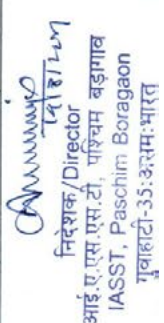 निदेशक/Director
आई.ए.एस.एस.टी, पश्चिम बड़ागाव
IASST, Paschim Boragaon
गुवाहाटी-35:असम:भारत